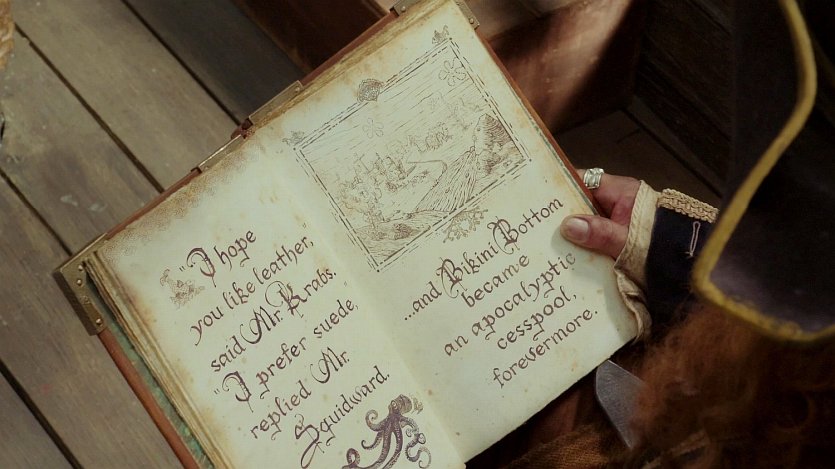 "I hope
you like leather",
said Mr. Krabs.
"I prefer suede,"
replied Mr.
Squidward.
...and Bikini Bottom
became
an apocalyptic
cesspool,
forevermore.